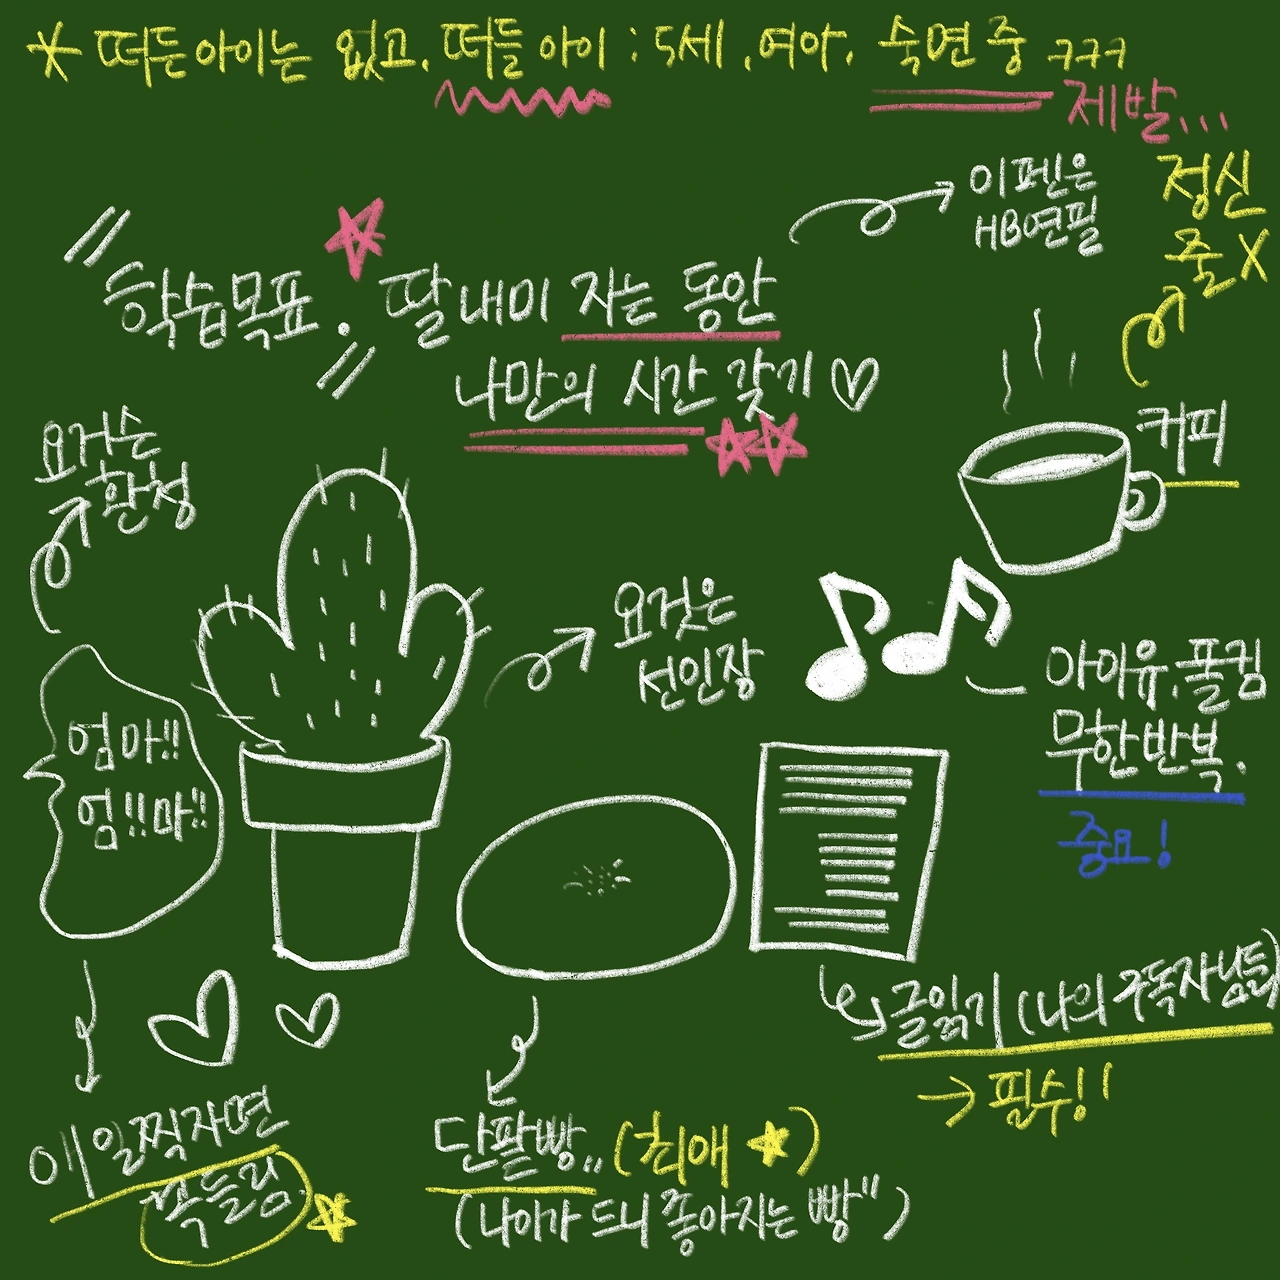 * 떠든아이는 없고. 떠들 아이 : 5세 .여아. 숙면 중 ㅋㅋㅋ
제발...
이 펜은
HB연필
정신
줄X
"학습목표." 딸내미 자는 동안
나만의 시간 갖기♡
커피
요거슨
환청
요것은
선인장
아이유.폴킴
무한반복.
중요!
엄마!!
엄!!마!!
글읽기 (나의 구독자님들)
→ 필수!!
애 일찍자면
꼭 들림.
단팥빵.. (최애 ★)
(나이가 드니 좋아지는 빵")